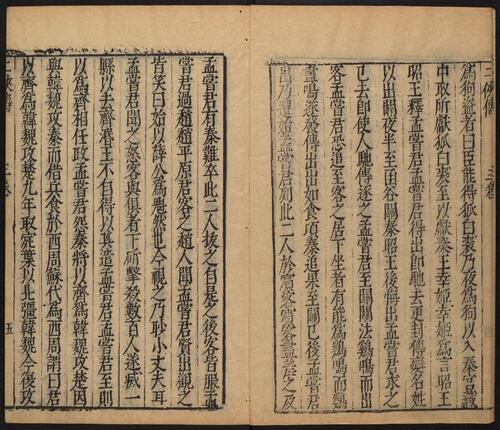 為狗盜者曰臣能得狐白裘乃夜為狗以入秦宮藏
中取所獻狐白裘至以獻秦王幸姬幸姬為言昭王
昭王釋孟嘗君孟嘗君得出即馳去更封傳變名姓
以出關夜半至函谷關秦昭王後悔出孟嘗君求之
已去即使人馳傳逐之孟嘗君至關關法雞鳴而出
客孟嘗君恐追至客之居下坐者有能為雞鳴而雞
盡鳴遂發傳出出如食頃秦追果至關已後孟嘗君
出乃還始孟嘗君列此二人於賓客賓客盡羞之及
孟嘗君有秦難卒此二人拔之自是之後客皆服孟
嘗君過趙趙平原君客之趙人聞孟嘗君賢出觀之
皆笑曰始以薛公為魁然也今視之乃眇小丈夫耳
孟嘗君聞之怒客與俱者下斫擊殺數百人遂滅一
縣以去齊湣王不自得以其遣孟嘗君孟嘗君至則
以為齊相任政孟嘗君怨秦將以齊為韓魏攻楚因
與韓魏攻秦而借兵食於西周蘇代為西周謂曰君
以齊為韓魏攻楚九年取宛葉以北彊韓魏今復攻
三卷
五